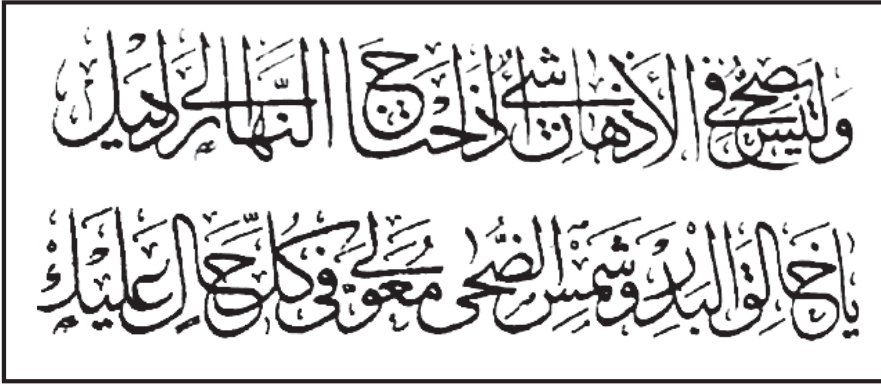 وليس يصح في الأذهان شيء إذا احتاج النهار إلى دليل
يا خالق البدر وشمس الضحى معولي في كل حال عليك